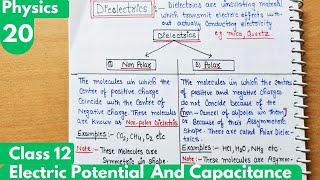 Physics
20
Dielectrics :- Dielectrics are insulating material
which transmit electric effects with
actually conducting electricity
eg. mica, Quartz
Dielectrics
① Non Polar
② Polar
The molecules in which the
Centre of positive charge
Coincide with the Centre of
Negative charge. These molecules
are known as Non-polar Dielectrics
Examples:- CO2, CH4, O2 etc
Note :- These Molecules are
Symmetric in shape
The molecules in which the centres
of positive and negative charges
do not Coincide because of the
non-Cancel of dipoles in them
or Because of their Assymmetric
Shape. There are called Polar Dielec-
trics.
Examples:- HCl, H2O, NH3 etc.
Note:- These molecules are Asymmet-
Class 12
Electric Potential And Capacitance